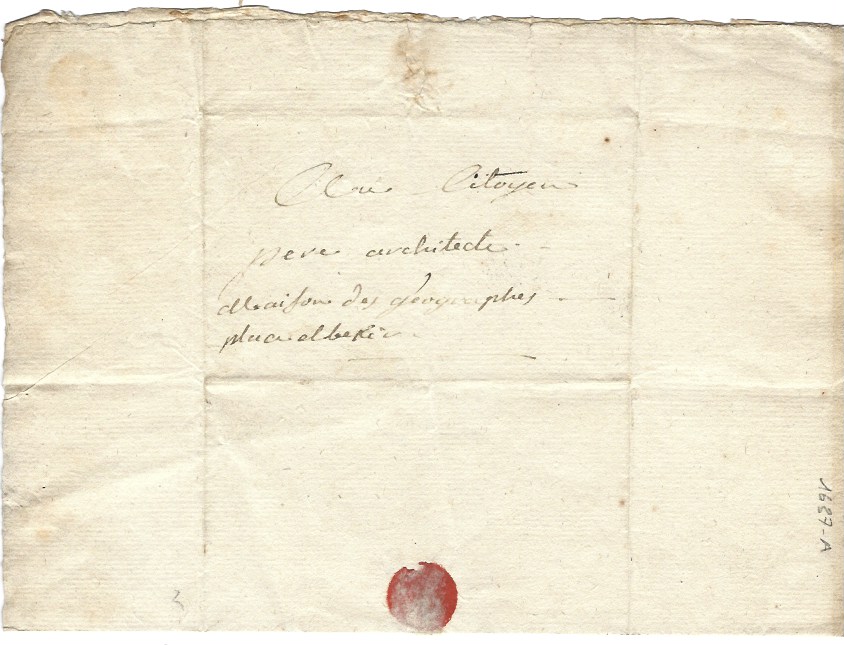 Au Citoyen
pere architecte
Maison des géographes
place elbekir
1687-A